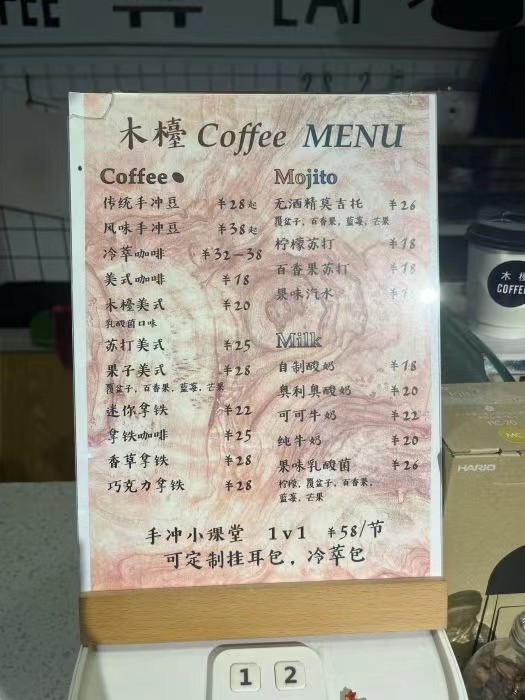 木檯 Coffee MENU
Coffee
传统手冲豆 ¥28起
风味手冲豆 ¥38起
冷萃咖啡 ¥32-38
美式咖啡 ¥18
木檯美式 ¥20
乳酸菌口味
苏打美式 ¥25
果子美式 ¥28
覆盆子、百香果、蓝莓、芒果
迷你拿铁 ¥22
拿铁咖啡 ¥25
香草拿铁 ¥28
巧克力拿铁 ¥28
Mojito
无酒精莫吉托 ¥26
覆盆子、百香果、蓝莓、芒果
柠檬苏打 ¥18
百香果苏打 ¥18
果味汽水
Milk
自制酸奶 ¥18
奥利奥酸奶 ¥20
可可牛奶 ¥22
纯牛奶 ¥20
果味乳酸菌 ¥26
柠檬、覆盆子、百香果、
蓝莓、芒果
手冲小课堂 1v1 ¥58/节
可定制挂耳包，冷萃包
1 2
木檯
COFFEE
HARIO